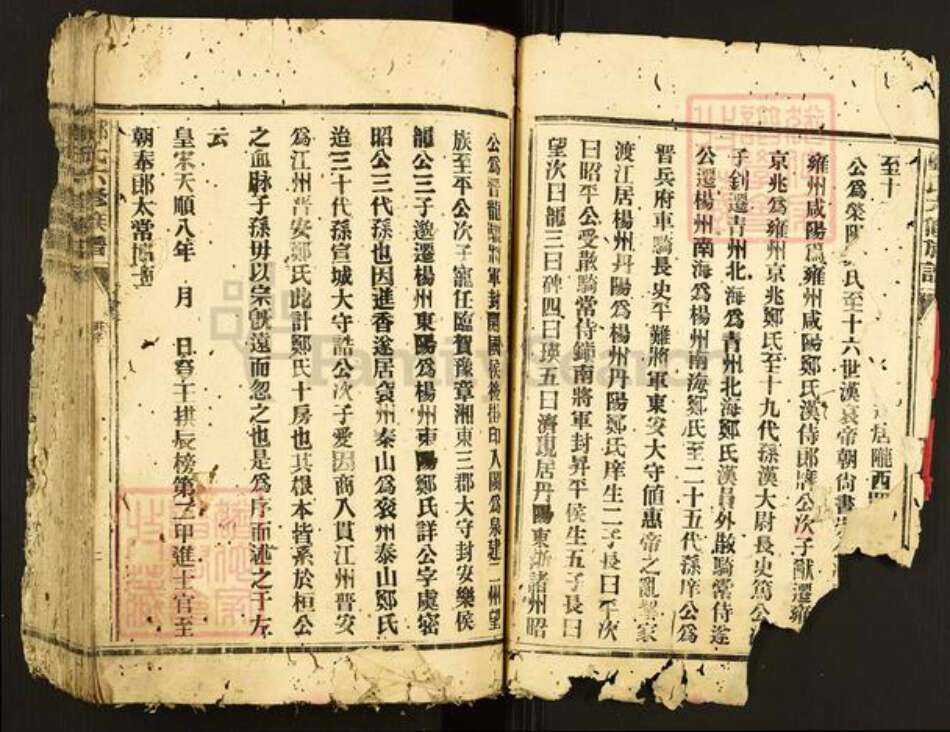 至十
居隴西
公爲滎陽 氏至十六世漢哀帝朝尙書
雍州咸陽爲雍州咸陽鄭氏漢侍郎 公次子猷遷雍
京兆爲雍州京兆鄭氏至十九代孫漢大尉長史篤公
子釗遷青州北海爲青州北海鄭氏漢員外散騎常侍逵
公遷楊州南海爲楊州南海鄭氏至二十五代孫庠公爲
晉兵府車騎長史平難將軍東安大守値惠帝之亂 家
渡江居楊州丹陽爲楊州丹陽鄭氏庠生二子長曰平次
曰昭平公受散騎常侍鎮南將軍封昇平侯生五子長曰
望次曰龍三曰碑四曰瑛五曰濟現居丹陽東浙諸州昭
公爲晉龍驤將軍封開國侯後掛印入閩爲泉建二州望
族至平公次子寵任臨賀豫章湘東三郡大守封安樂侯
龍公三子邀遷楊州東陽爲楊州東陽鄭氏詳公字處密
昭公三代孫也因進香遂居袞州泰山爲袞州泰山鄭氏
迨三十代孫宣城大守誥公次子愛因商入貫江州晋安
爲江州晋安鄭氏此計鄭氏十房也其根本皆系於桓公
之血脉子孫毋以宗旣遠而忽之也是爲序而述之于左
云
皇宋天順八年 月 日登王拱辰榜第二甲進士官至
朝奉郎太常博士